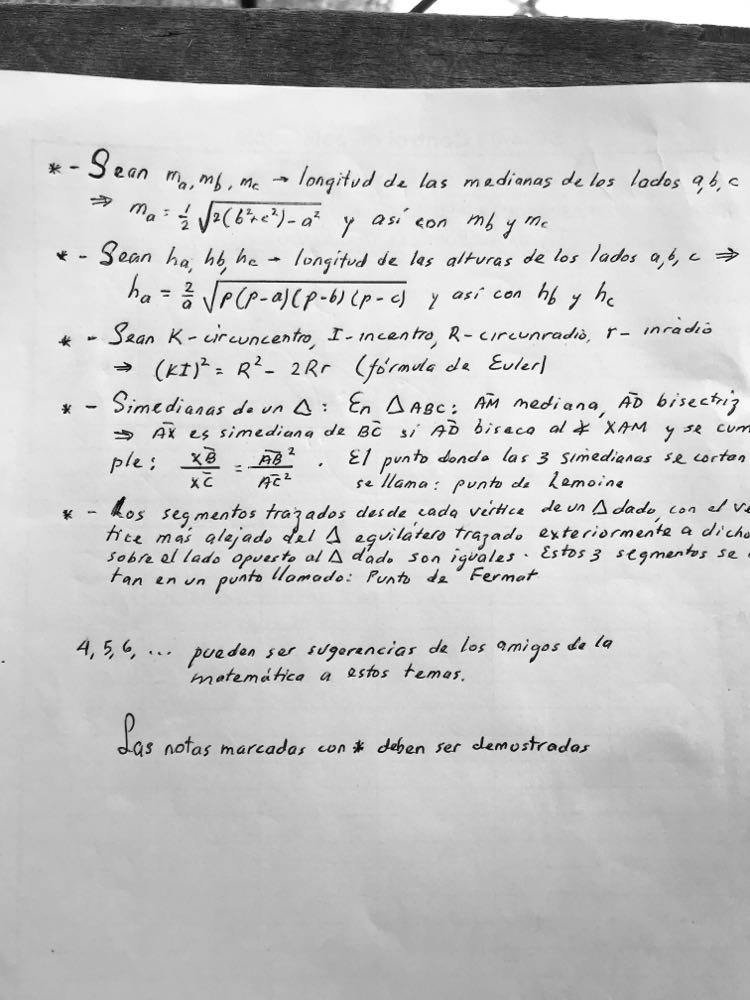 * - Sean ma, mb, mc → longitud de las medianas de los lados a, b, c
⇒ ma = 1/2 √(2(b²+c²) - a²) y así con mb y mc
* - Sean ha, hb, hc → longitud de las alturas de los lados a, b, c ⇒
ha = 2/a √(p(p-a)(p-b)(p-c)) y así con hb y hc
* - Sean K - circuncentro, I - incentro, R - circunradio, r - inradio
⇒ (KI)² = R² - 2Rr (fórmula de Euler)
* - Simedianas de un Δ: En ΔABC: A̅M̅ mediana, A̅D̅ bisectriz
⇒ A̅X̅ es simediana de B̅C̅ si A̅D̅ biseca al ∢ XAM y se cum
ple: X̅B̅/X̅C̅ = A̅B̅²/A̅C̅². El punto donde las 3 simedianas se cortan
se llama: punto de Lemoine
* - Los segmentos trazados desde cada vértice de un Δ dado, con el vé
tice más alejado del Δ equilátero trazado exteriormente a dicho
sobre el lado opuesto al Δ dado son iguales. Estos 3 segmentos se
tan en un punto llamado: Punto de Fermat
4, 5, 6, ... pueden ser sugerencias de los amigos de la
matemática a estos temas.
Las notas marcadas con * deben ser demostradas